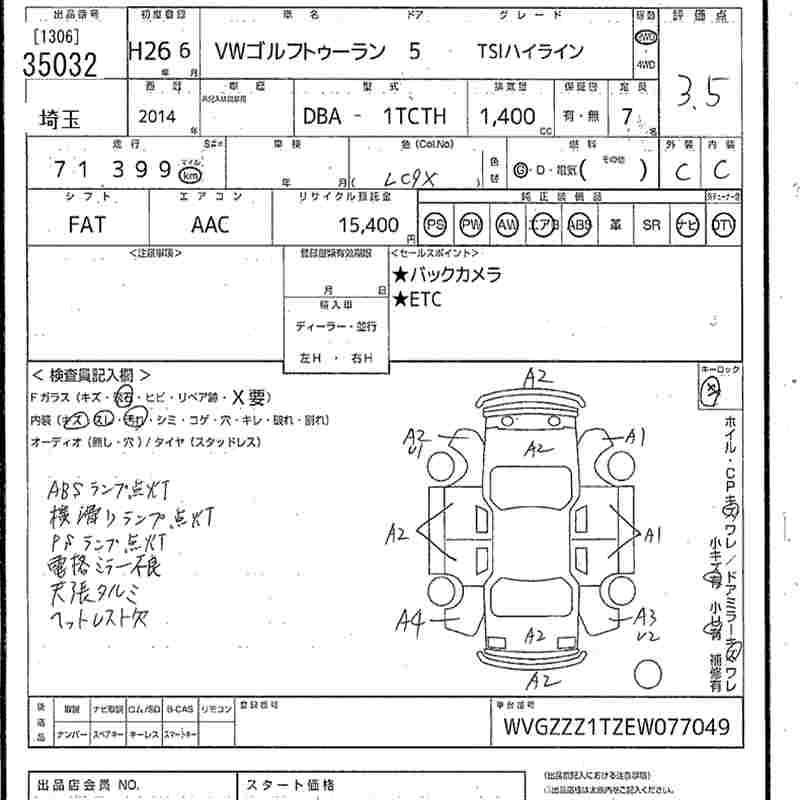 出品番号 初度登録 車名 ドア グレード 駆動 評価点
[1306]
35032 H26 6 VWゴルフトゥーラン 5 TSIハイライン 2WD 3.5
年 月 4WD
西暦 車歴 型式 排気量 保証書 定員
埼玉 2014 年 DBA - 1TCTH 1,400 CC 有・無 7 名
走行 車検 色(Col.No) 燃料 外装 内装
71 399 マイル km 年 月 ( LC9X ) 色替 G・D・電気( その他 ) C C
シフト エアコン リサイクル預託金 純正装備品
FAT AAC 15,400 円 PS PW AW エアB ABS 革 SR ナビ DTV
<注意事項> 登録書類有効期限 <セールスポイント>
★バックカメラ
月 日 ★ETC
輸入車
ディーラー・並行
左H ・ 右H
<検査員記入欄> キーロック
Fガラス(キズ・飛石・ヒビ・リペア跡・X要)
内装(キズ・スレ・汚れ・シミ・コゲ・穴・キレ・破れ・割れ)
オーディオ(無し・穴)/タイヤ(スタッドレス)
ABSランプ点灯
横滑りランプ点灯
PSランプ点灯
電格ミラー不良
天張タルミ
ヘットレスト欠
A2
A2 U1 A2 A1
A2 A1
A4 A2 A3 U2
A2
ホイル・CPキズワレ/ドアミラーキズワレ
小キズ有 小凹有 補修有
後送品 取説 ナビ取説 ロム/SD B-CAS リモコン 登録番号 車台番号
ナンバー スペアキー キーレス スマートキー WVGZZZ1TZEW077049
出品店会員 NO. スタート価格 (出品票記入における注意事項)
○出品店様は太枠内をご記入ください。